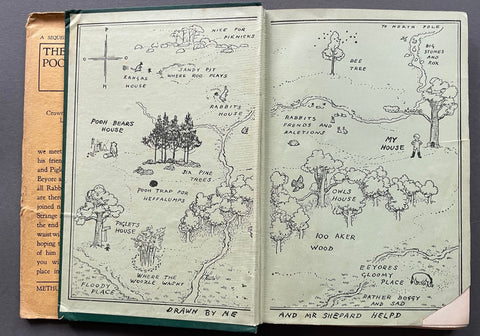 A SEQUE
THE
POO
Crown
we meet
his friend
and Pigle
Eeyore a
all Rabb
are there
joined n
Strange
the end
waist wi
hoping t
of him a
you will
place in
METHU
NICE FOR
PIKNICKS
KANGAS
HOUSE
SANDY PIT
WHERE ROO PLAYS
RABBITS
HOUSE
POOH BEARS
HOUSE
SIX PINE
TREES
POOH TRAP FOR
HEFFALUMPS
PIGLETS
HOUSE
WHERE THE
WOOZLE WASNT
FLOODY
PLACE
DRAWN BY ME
TO NORTH POLE
BIG
STONES
AND
ROX
BEE
TREE
RABBITS
FRENDS AND
RALETIONS
MY
HOUSE
OWLS
HOUSE
100 AKER
WOOD
EEYORES
GLOOMY
PLACE
RATHER BOGGY
AND SAD
AND MR SHEPARD HELPD